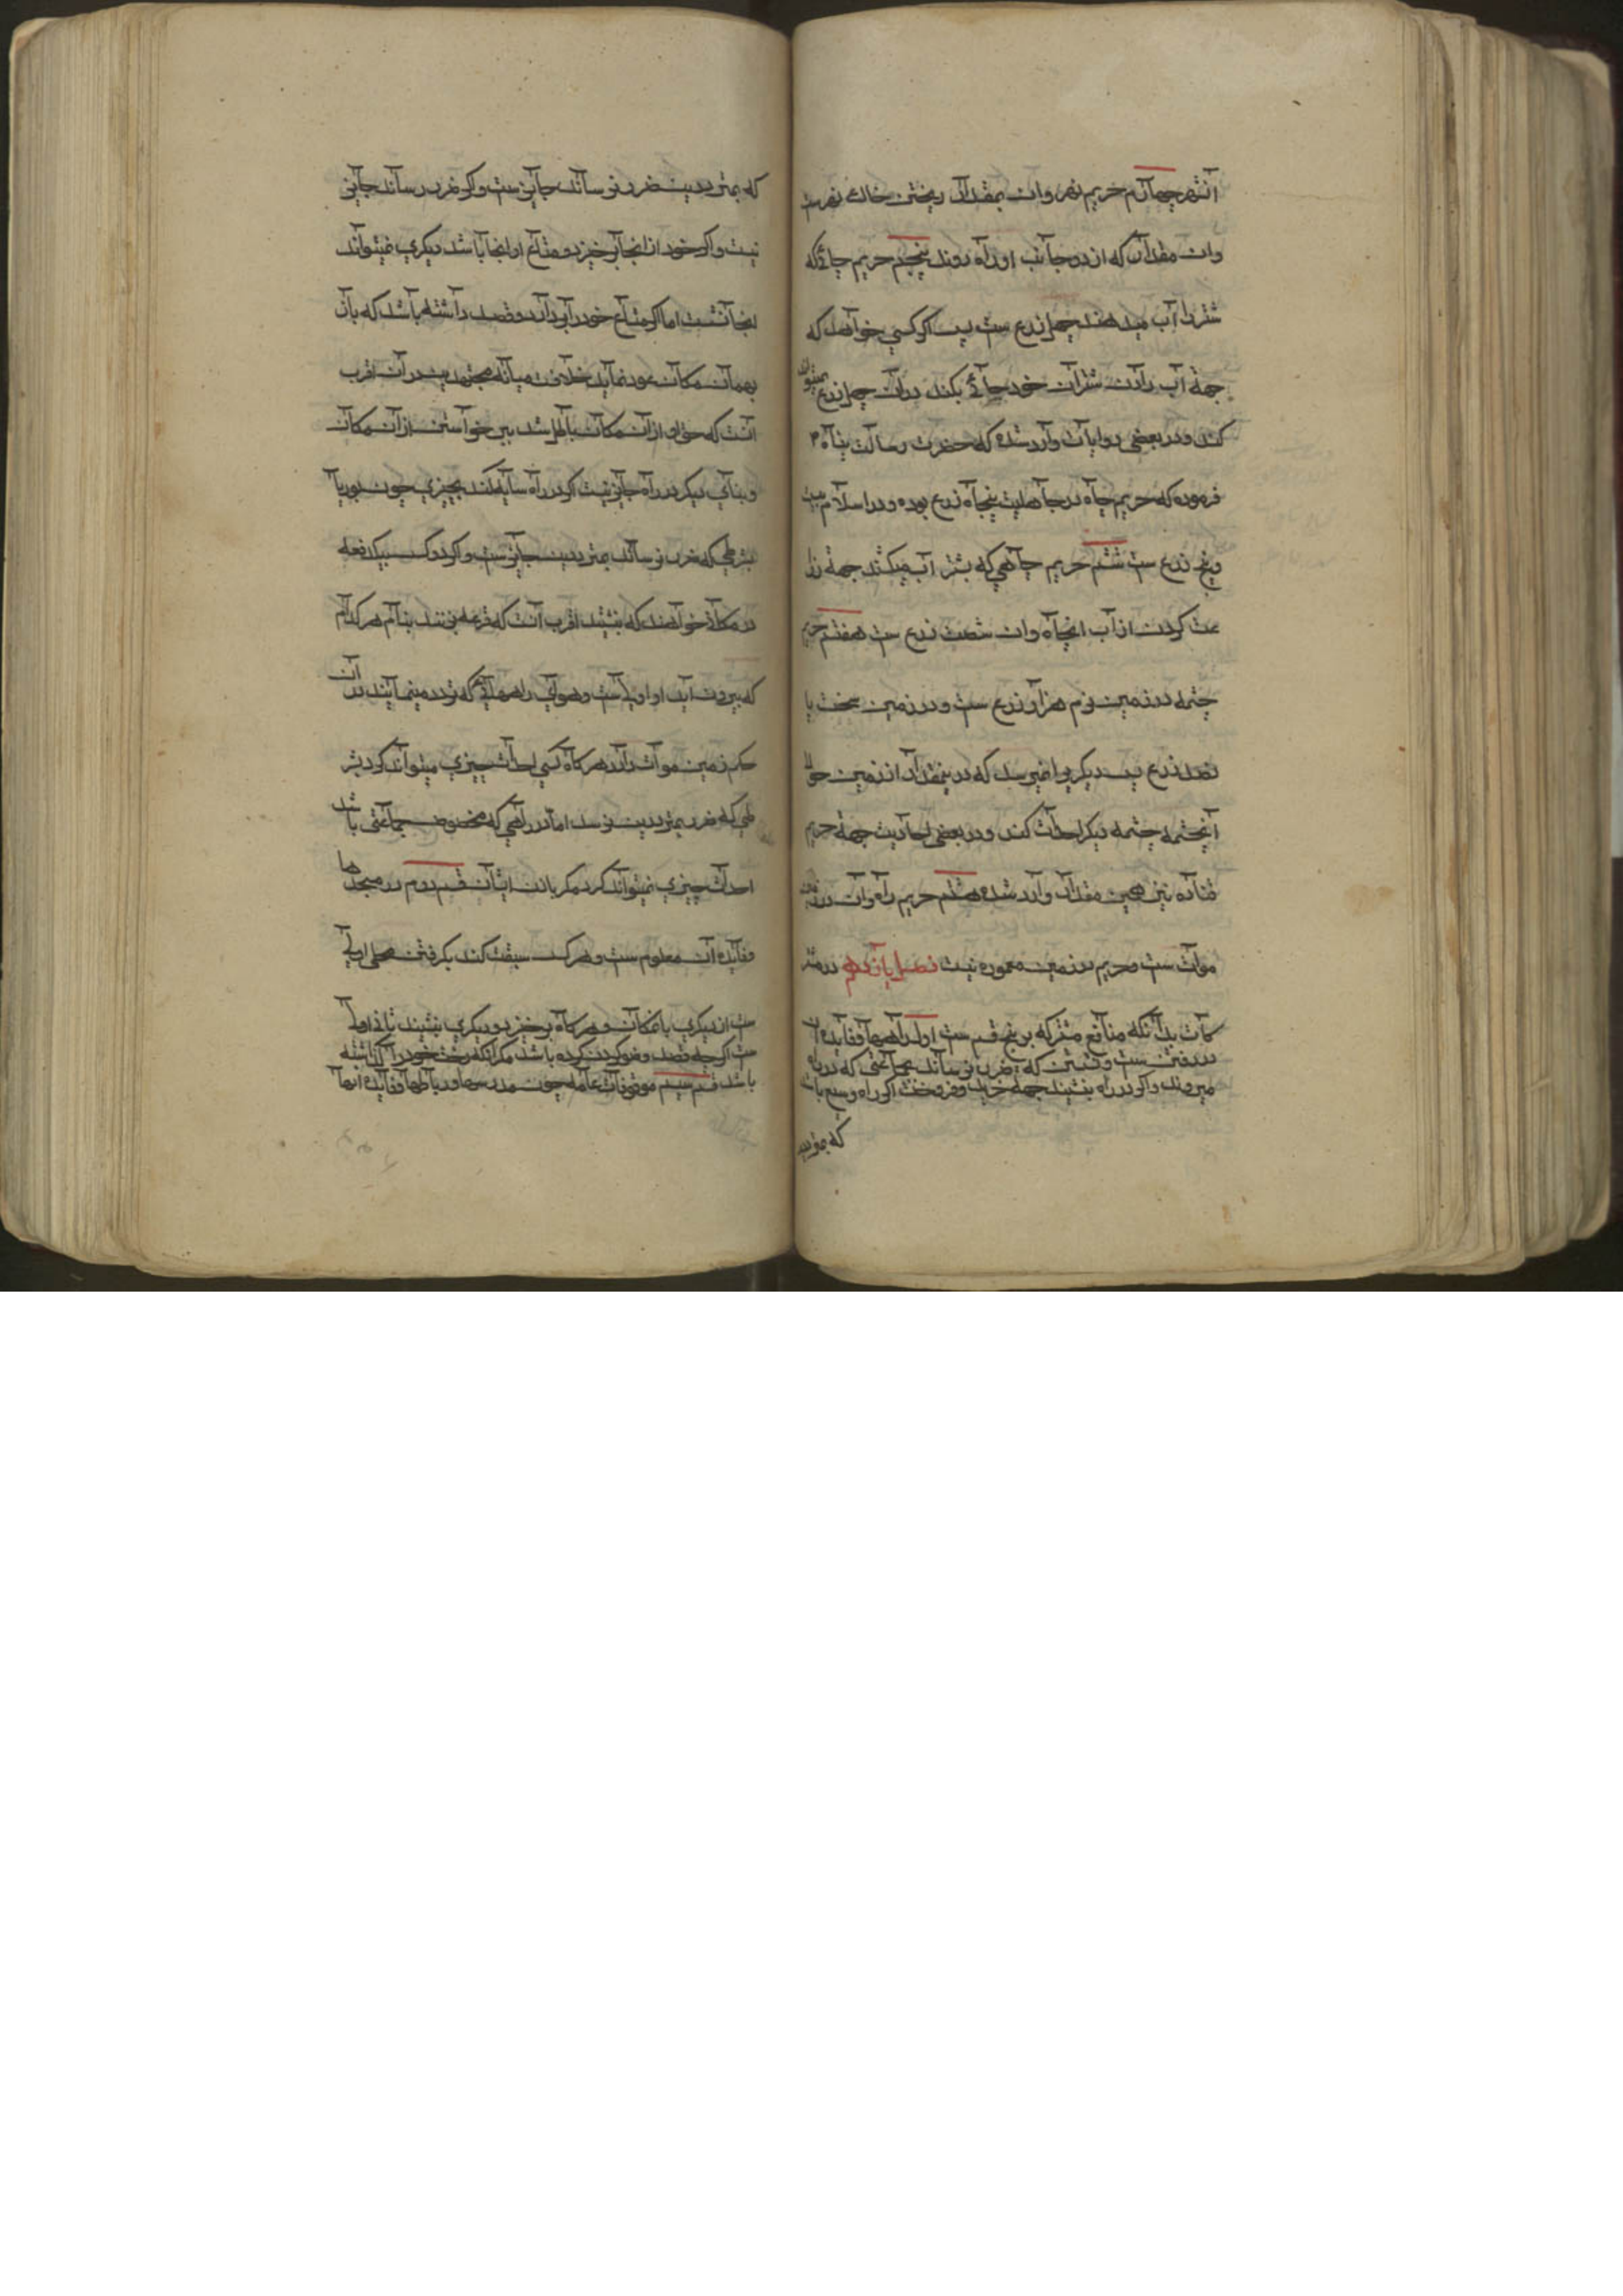 آنشهر چهارم حریم نهر و ان بمقدار ریختن خاك نهرست
وان مقدار که از دو جانب او راه روند پنجم حریم چائیکه
شتر را آب میدهند چهل ذرع ست پس اکر کسی خواهد که
جهة آب دادن شتران خود چائی بکند در ان چهل ذرع نمیتواند
کند و در بعضی روایات وارد شده که حضرت رسالت پناه م
فرموده که حریم چاه در جاهلیت پنجاه ذرع بوده و در اسلام بیست
و پنج ذرع ست ششم حریم چاهی که بشتر آب میکشند جهة زرا
عت کردن از آب انچاه وان شصت ذرع ست هفتم حریم
چشمه در زمین نرم هزار ذرع ست و در زمین سخت پا
نصد ذرع پس دیکری را نمیرسد که در ینمقدار از زمین حوالی
آنچشمه چشمه دیکر احداث کند و در بعضی احادیث جهة حریم
قناة نیز همین مقدار وارد شده هشتم حریم راه وان در زمین
موات ست و حریم در زمین معموره نیست فصل یازدهم در مشتر
کات بدانکه منافع مشترکه بر پنج قسم ست اول راهها و فایده ان
در رفتن ست و نشستن که ضرر نرساند بجماعتی که در راه
میروند و اکر در راه بنشیند جهة خرید و فروخت اکر راه وسیع باشد
که بمتردین
که بمترددین ضرر نرساند جایز ست و اکر ضرر رساند جایز
نیست و اکر خود از انجا برخیزد و متاع او انجا باشد دیکری نمیتواند
انجا نشست اما اکر متاع خود را بردارد و قصد داشته باشد که بان
بهمان مکان عود نماید خلافست میانه مجتهدین در آن اقرب
آنست که حق او از ان مکان باطل شد بر خواستن از ان مکان
و بنای دیکر در راه جایز نیست اکر در راه سایه کند بچیزی چون بوریا
بشرطی که ضرر نرساند بمترددین جایز ست و اکر دو کس بیکدفعه
در مکانی خواهند که بنشینند اقرب آنست که قرعه بزنند بنام هر کدام
که بیرون اید او اولی ست و هوای راههائی که تردد مینمایند در آن
حکم زمین موات دارد هر کاه کسی احداث چیزی میتواند کرد بشر
طی که ضرر بمترددین نرسد اما در راهی که مخصوص جماعتی باشد
احداث چیزی نمیتواند کرد مکر باذن ایشان قسم دوم در مسجدها
و فایده ان معلوم ست و هر کس سبقت کند بکرفتن محلی اولی
ست از دیکری بانمکان و هر کاه برخیزد و دیکری بنشیند ثانی اولی
ست اکرچه قصد وضو کردن کرده باشد مکر آنکه رخت خود را کذاشته
باشد قسم سیم موقوفات عامه چون مدرسها و رباطها و فایده انها